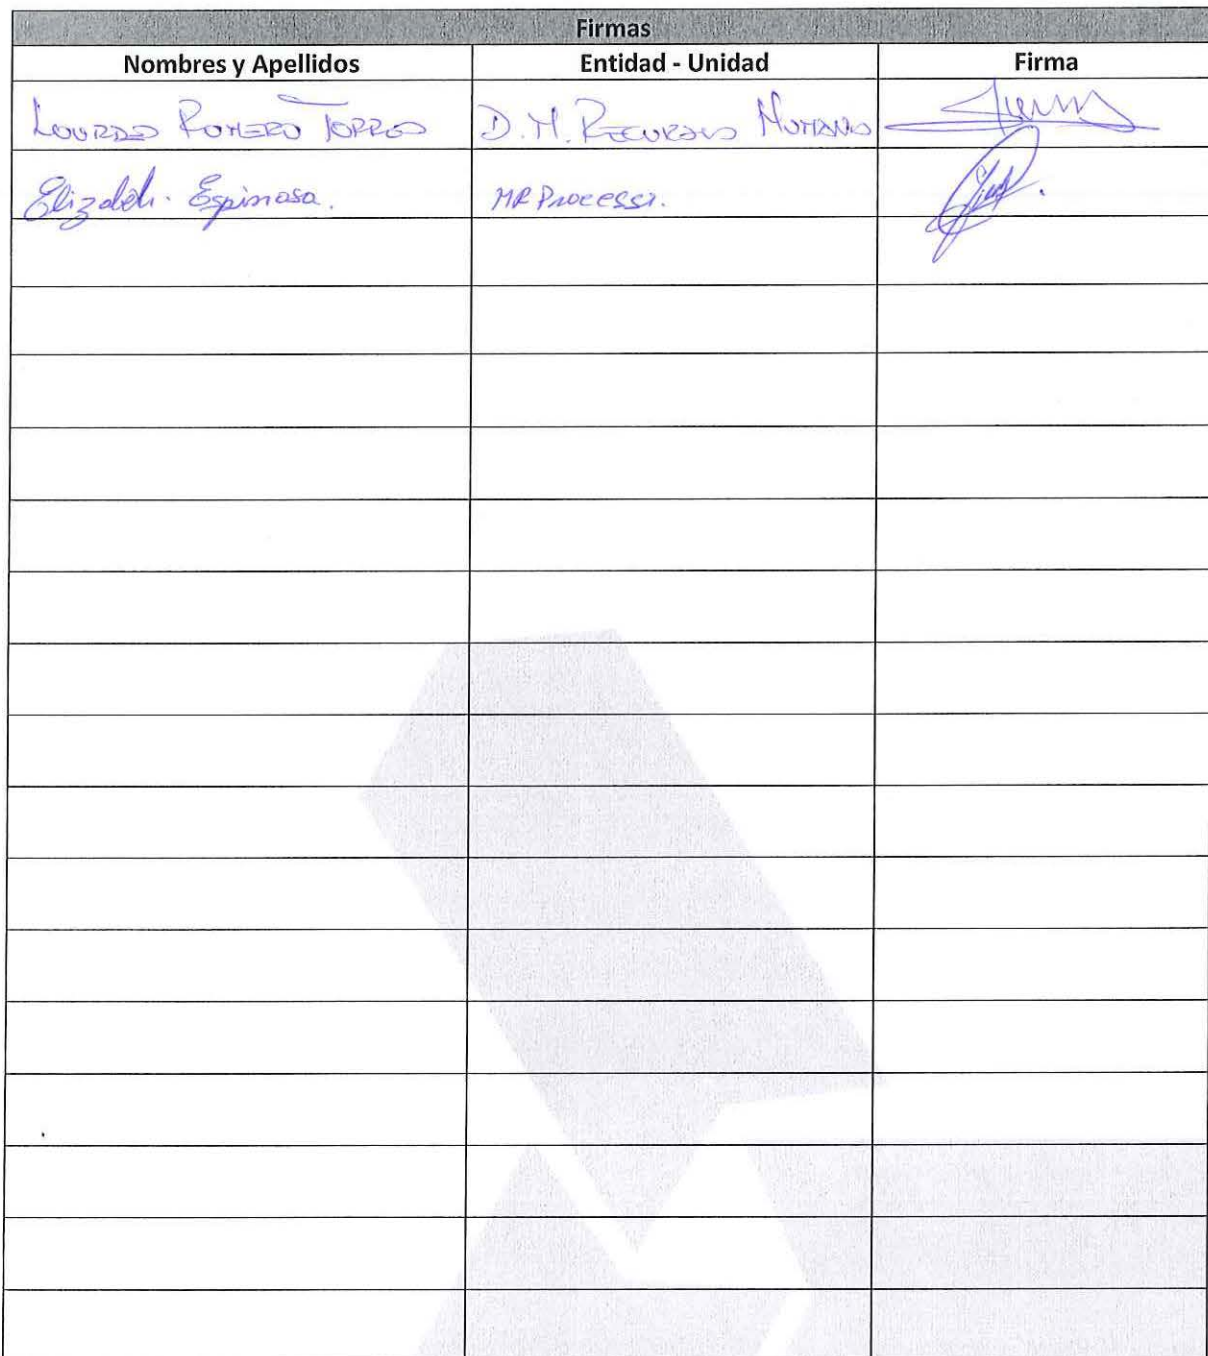 Firmas
Nombres y Apellidos Entidad - Unidad Firma
Lourdes Romero Torres D.M. Recursos Humanos
Elizabeth. Espinosa. MR Process.